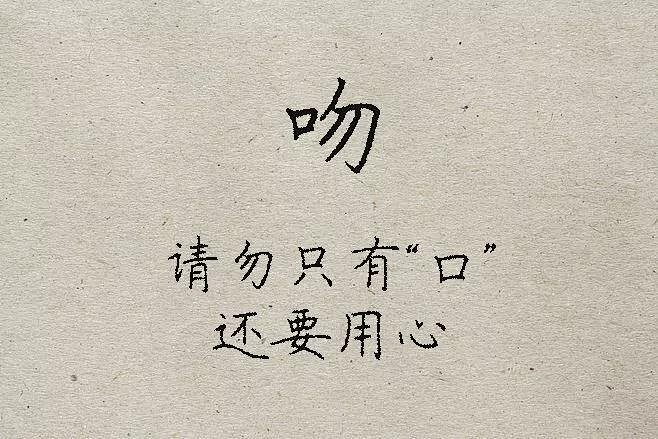 吻
请勿只有“口”
还要用心